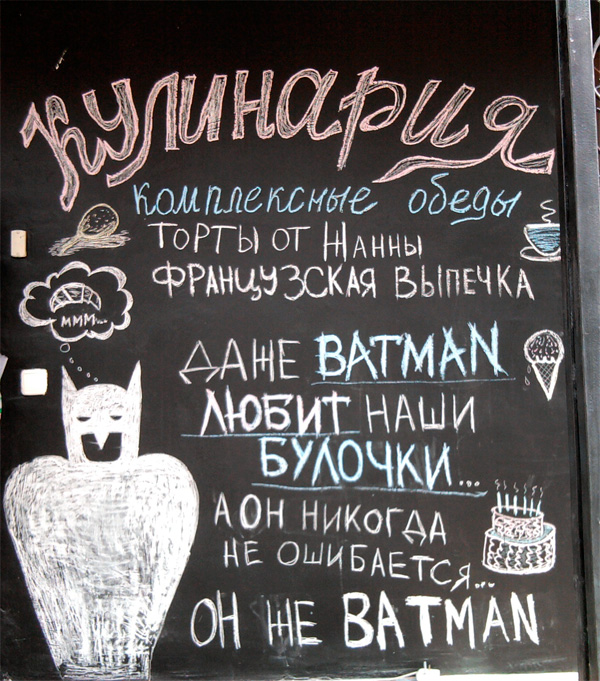 Кулинария
комплексные обеды
ТОРТЫ ОТ ЖАННЫ
ФРАНЦУЗСКАЯ ВЫПЕЧКА
МММ...
ДАЖЕ BATMAN
ЛЮБИТ НАШИ
БУЛОЧКИ...
А ОН НИКОГДА
НЕ ОШИБАЕТСЯ...
ОН ЖЕ BATMAN